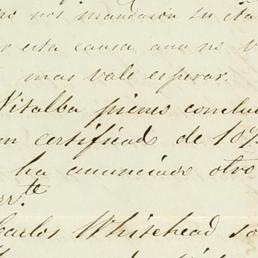 no nos mandaron su
esta causa aun no
mas vale esperar.
Vitalba pienso conclu
certificado de 10
ha anunciado otro
Carlos Whitehead so